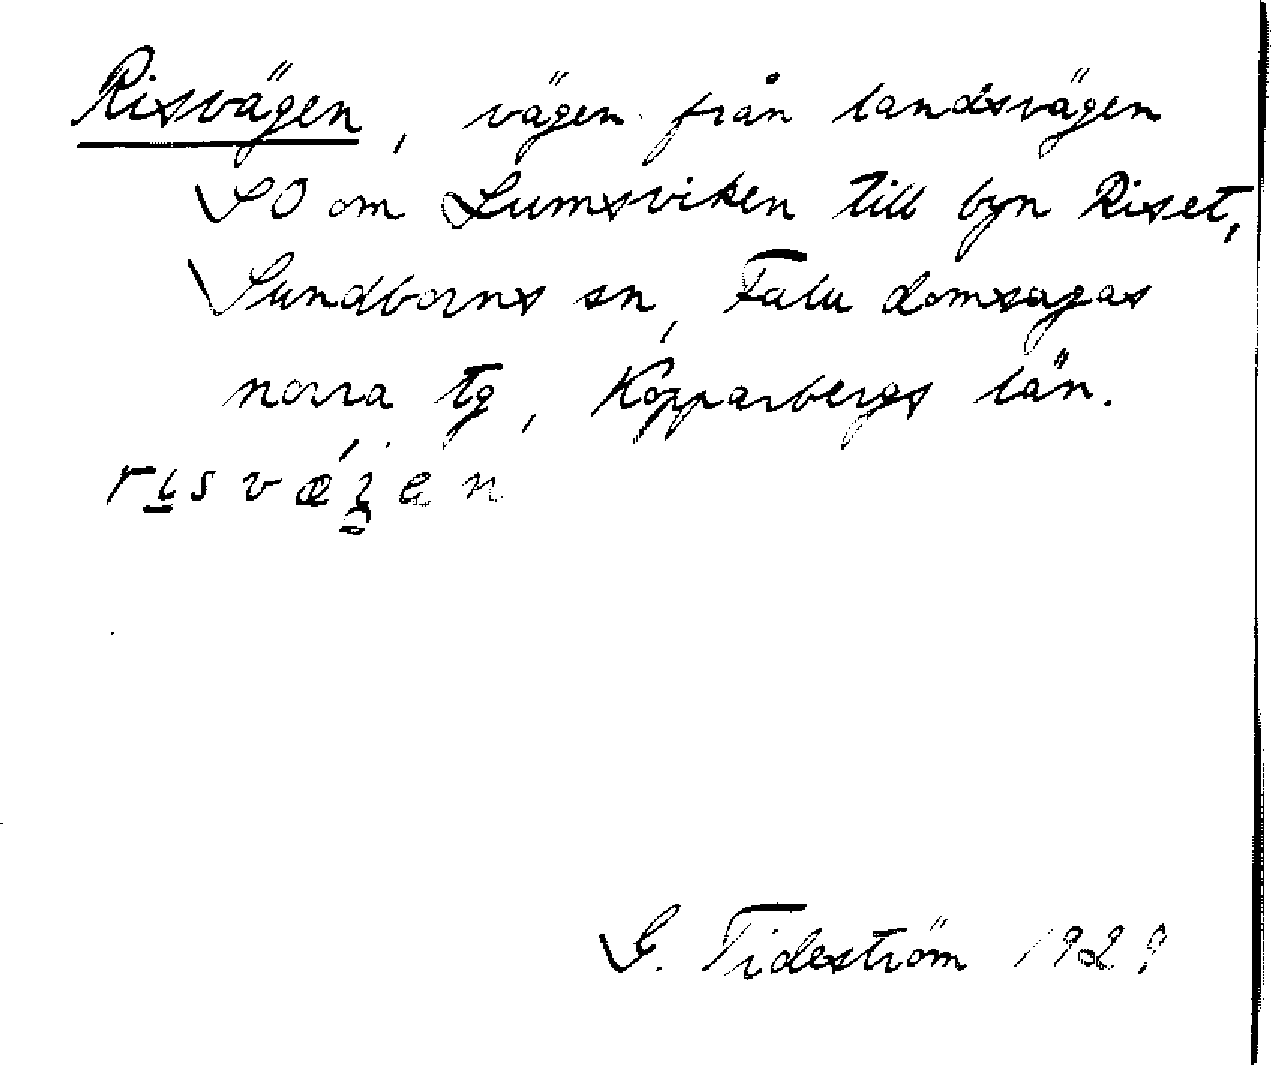 Risvägen, vägen från landsvägen
SO om Lumsviken till byn Riset,
Sundborns sn, Falu domsagas
norra tg, Kopparbergs län.
risvǽjen
G. Tideström 1929